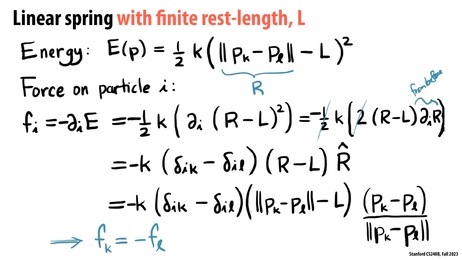 Linear spring with finite rest-length, L
Energy: E(p) = 1/2 k (‖pₖ - pₗ‖ - L)²
R
Force on particle i:
from before
fᵢ = -∂ᵢE = -1/2 k (∂ᵢ (R-L)²) = -1/2 k (2 (R-L) ∂ᵢR)
= -k (δᵢₖ - δᵢₗ) (R-L) R̂
= -k (δᵢₖ - δᵢₗ) (‖pₖ-pₗ‖ - L) (pₖ-pₗ)/‖pₖ-pₗ‖
⟹ fₖ = -fₗ
Stanford CS248B, Fall 2023